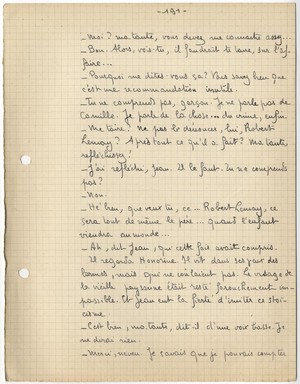 - 191 -
_ Moi ? ma tante, vous devez me connaître assez...
_ Bon. Alors, vois-tu, il faudrait te taire, sur l'af-
faire...
_ Pourquoi me dites-vous ça ? Vous savez bien que
c'est une recommandation inutile.
_ Tu ne comprends pas, garçon. Je ne parle pas de
Camille. Je parle de la chose... du crime, enfin.
_ Me taire ? Ne pas le dénoncer, lui, Robert
Lemay ? Après tout ce qu'il a fait ? Ma tante,
réfléchissez !
_ J'ai réfléchi, Jean. Il le faut. Tu ne comprends
pas ?
_ Non.
_ Hé bien, que veux-tu, ce... Robert Lemay, ce
sera tout de même le père... quand l'enfant
viendra au monde...
_ Ah, dit Jean, qui cette fois avait compris.
Il regarda Honorine. Il vit dans ses yeux des
larmes, mais qui ne coulaient pas. Le visage de
la vieille paysanne était resté farouchement im-
passible. Et Jean eut la fierté d'imiter ce stoï-
cisme.
_ C'est bien, ma tante, dit-il d'une voix basse. Je
ne dirai rien.
_ Merci, neveu. Je savais que je pouvais compter